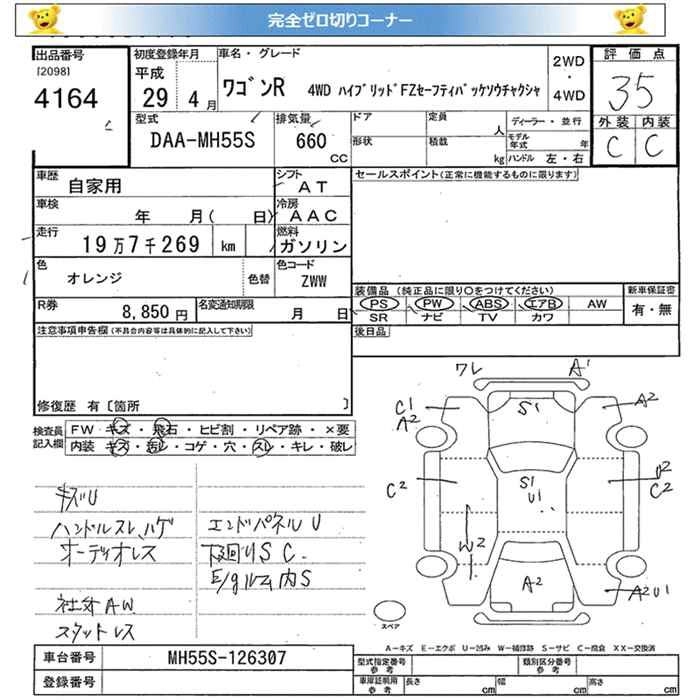 完全ゼロ切りコーナー
出品番号
[2098]
4164
初度登録年月
平成
29 4月
車名・グレード
ワゴンR 4WD ハイブリッドFZセーフティパッケソウチャクシャ
2WD
・
4WD
評価点
35
外装 内装
C C
型式
DAA-MH55S
排気量
660
CC
ドア
定員
人
形状
積載
kg
ディーラー・並行
モデル年式 年
ハンドル 左・右
車歴
自家用
シフト
AT
車検
年 月( 日)
冷房
AAC
走行
19万7千269 km
燃料
ガソリン
色
オレンジ
色替
色コード
ZWW
R券
8,850円
名変通知期限
月 日
セールスポイント(正常に機能するものに限ります)
装備品(純正品に限り○をつけてください)
新車保証書
PS PW ABS エアB AW
SR ナビ TV カワ
有・無
後日品
注意事項申告欄(不具合内容等は具体的に記入して下さい)
修復歴 有〔箇所 〕
検査員記入欄
FW キズ・飛石・ヒビ割・リペア跡・×要
内装 キズ・汚レ・コゲ・穴・スレ・キレ・破レ
キズU
ハンドルスレ、ハゲ
オーディオレス
社外AW
スタットレス
エンドパネルU
下廻りS C.
E/gルーム内S
ワレ A1
C1
A2
S1
A2
C2
S1
U1
U2
C2
W2
A2
A2 U1
スペア
A-キズ E-エクボ U-凹み W-補修跡 S-サビ C-腐食 XX-交換済
車台番号 MH55S-126307
登録番号
型式指定番号 参考
類別区分番号 参考
車庫証明用 参考
長さ cm
幅 cm
高さ cm